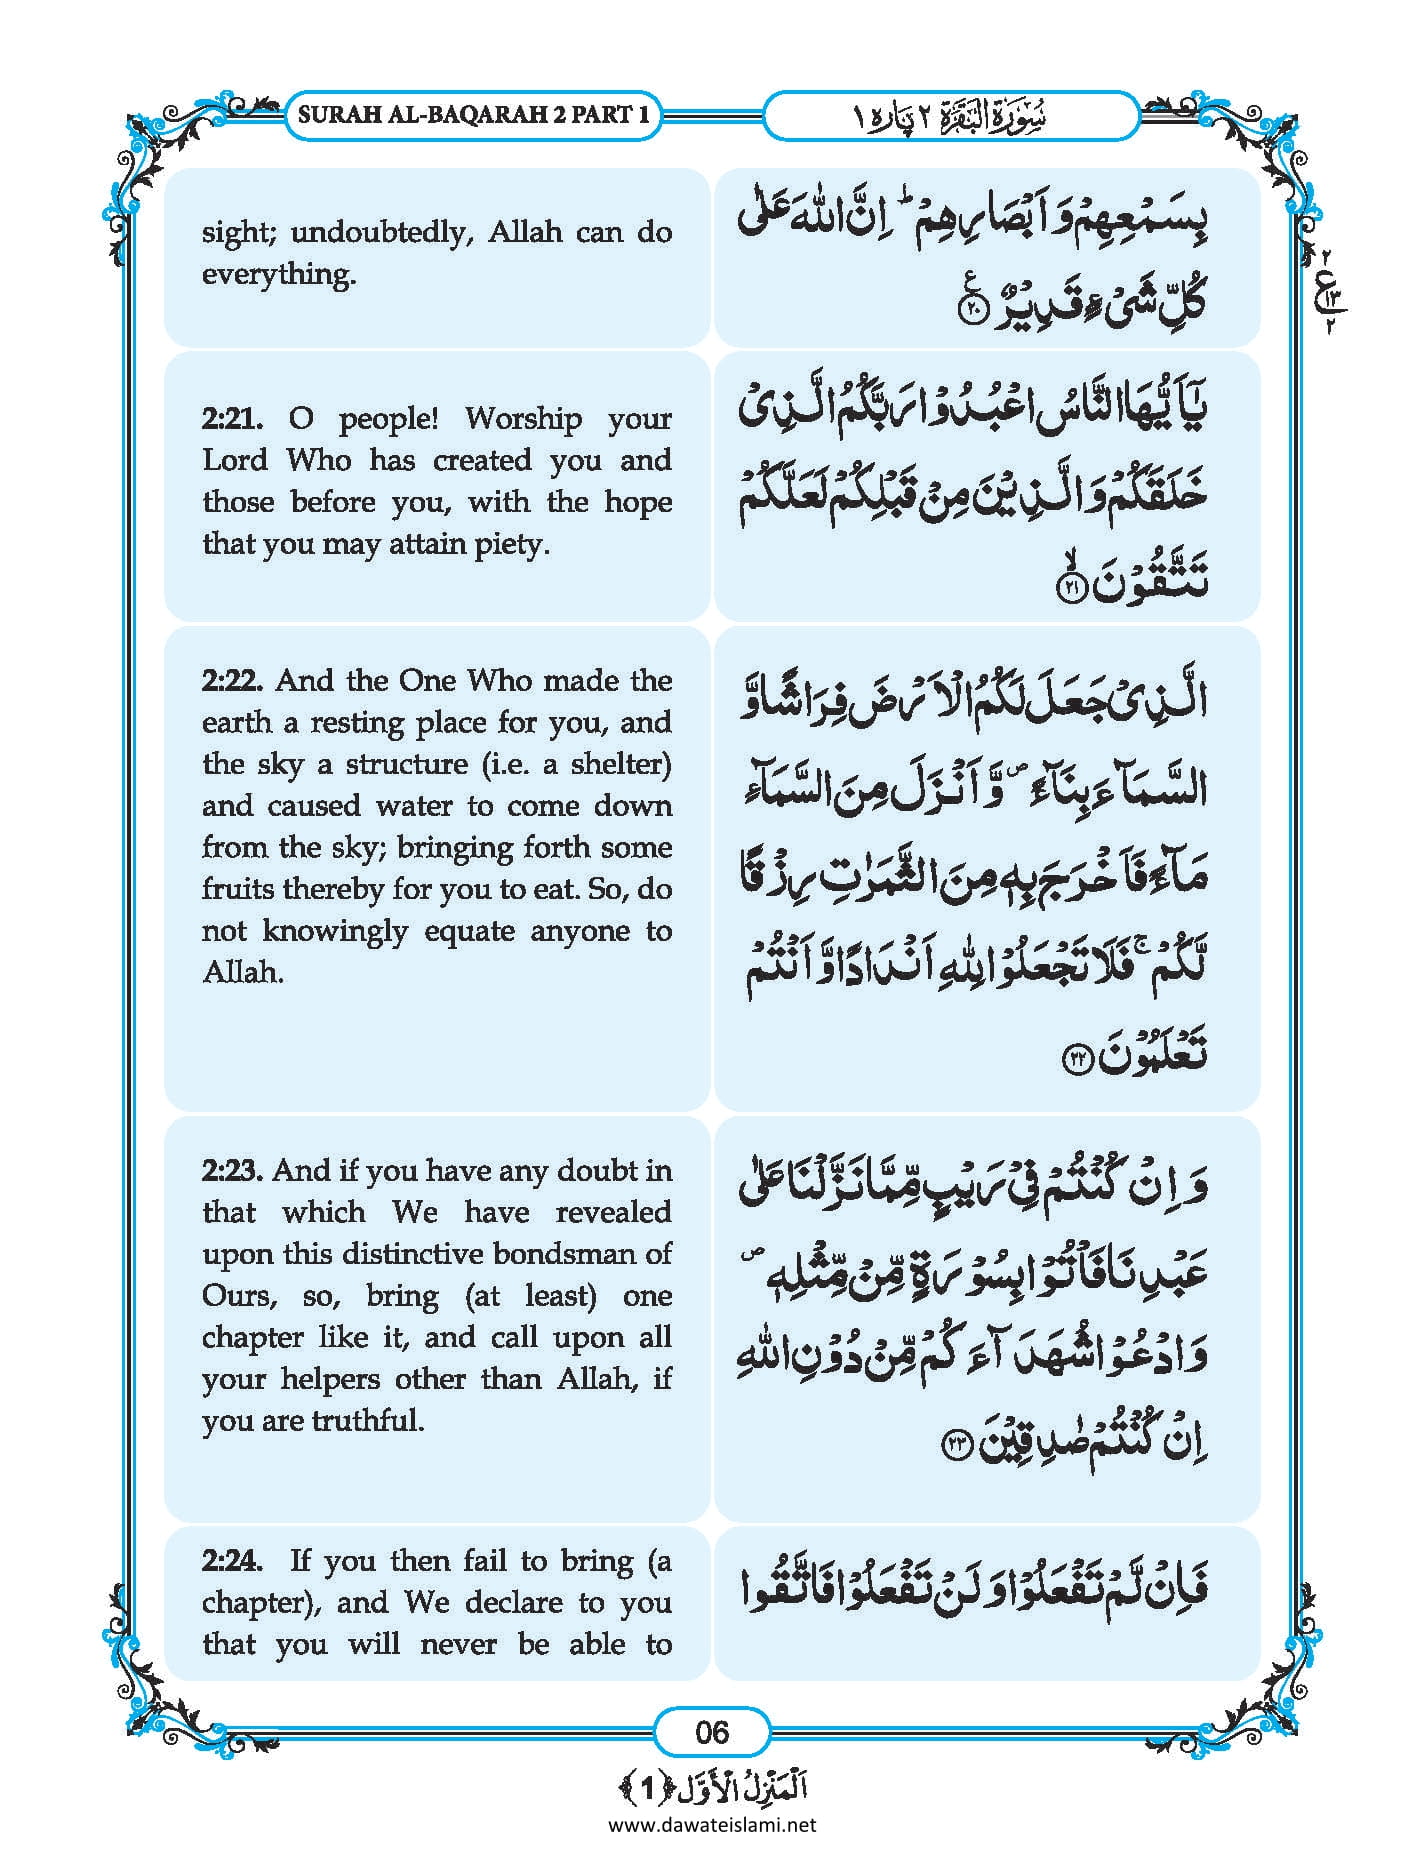 SURAH AL-BAQARAH 2 PART 1
سُوۡرَةُ الۡبَقَرَةِ ٢ پَارہ ١
sight; undoubtedly, Allah can do
everything.
بِسَمۡعِهِمۡ وَ اَبۡصَارِهِمۡ ؕ اِنَّ اللّٰهَ عَلٰى
كُلِّ شَىۡءٍ قَدِيۡرٌ ﴿٢٠﴾ ع
٢
ع ١٣
٢
2:21. O people! Worship your
Lord Who has created you and
those before you, with the hope
that you may attain piety.
يٰۤاَيُّهَا النَّاسُ اعۡبُدُوۡا رَبَّكُمُ الَّذِىۡ
خَلَقَكُمۡ وَ الَّذِيۡنَ مِنۡ قَبۡلِكُمۡ لَعَلَّكُمۡ
تَتَّقُوۡنَ ۙ﴿٢١﴾
2:22. And the One Who made the
earth a resting place for you, and
the sky a structure (i.e. a shelter)
and caused water to come down
from the sky; bringing forth some
fruits thereby for you to eat. So, do
not knowingly equate anyone to
Allah.
الَّذِىۡ جَعَلَ لَكُمُ الۡاَرۡضَ فِرَاشًا وَّ
السَّمَآءَ بِنَآءً ۪ وَّ اَنۡزَلَ مِنَ السَّمَآءِ
مَآءً فَاَخۡرَجَ بِهٖ مِنَ الثَّمَرٰتِ رِزۡقًا
لَّكُمۡ ۚ فَلَا تَجۡعَلُوۡا لِلّٰهِ اَنۡدَادًا وَّ اَنۡتُمۡ
تَعۡلَمُوۡنَ ﴿٢٢﴾
2:23. And if you have any doubt in
that which We have revealed
upon this distinctive bondsman of
Ours, so, bring (at least) one
chapter like it, and call upon all
your helpers other than Allah, if
you are truthful.
وَ اِنۡ كُنۡتُمۡ فِىۡ رَيۡبٍ مِّمَّا نَزَّلۡنَا عَلٰى
عَبۡدِنَا فَاۡتُوۡا بِسُوۡرَةٍ مِّنۡ مِّثۡلِهٖ ۪
وَ ادۡعُوۡا شُهَدَآءَكُمۡ مِّنۡ دُوۡنِ اللّٰهِ
اِنۡ كُنۡتُمۡ صٰدِقِيۡنَ ﴿٢٣﴾
2:24. If you then fail to bring (a
chapter), and We declare to you
that you will never be able to
فَاِنۡ لَّمۡ تَفۡعَلُوۡا وَ لَنۡ تَفۡعَلُوۡا فَاتَّقُوا
06
اَلۡمَنۡزِلُ الۡاَوَّل ﴿1﴾
www.dawateislami.net